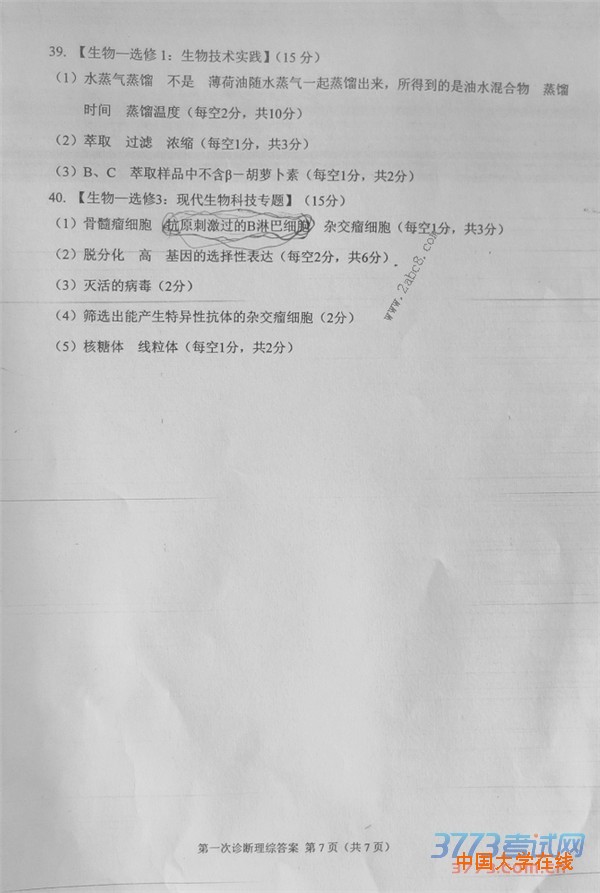 39. 【生物—选修1：生物技术实践】（15分）
（1）水蒸气蒸馏　不是　薄荷油随水蒸气一起蒸馏出来，所得到的是油水混合物　蒸馏
时间　蒸馏温度（每空2分，共10分）
（2）萃取　过滤　浓缩（每空1分，共3分）
（3）B、C　萃取样品中不含β－胡萝卜素（每空1分，共2分）
40. 【生物—选修3：现代生物科技专题】（15分）
（1）骨髓瘤细胞　抗原刺激过的B淋巴细胞　杂交瘤细胞（每空1分，共3分）
（2）脱分化　高　基因的选择性表达（每空2分，共6分）
（3）灭活的病毒（2分）
（4）筛选出能产生特异性抗体的杂交瘤细胞（2分）
（5）核糖体　线粒体（每空1分，共2分）
www.2abc8.com
第一次诊断理综答案 第7页（共7页）
3773考试网
中国大学在线